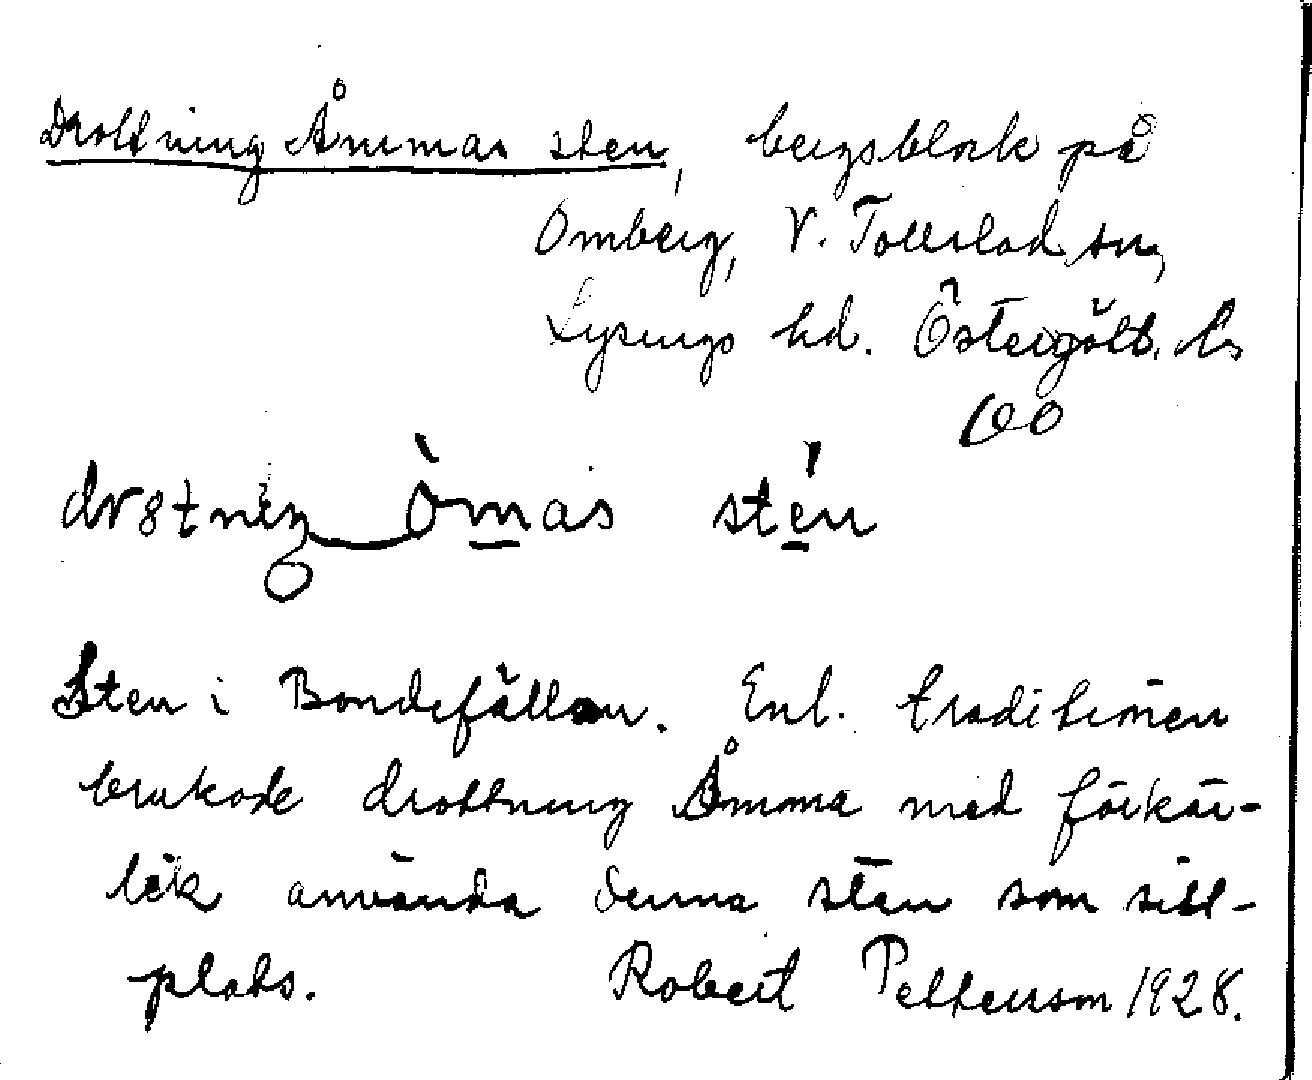 Drottning Åmmas sten, bergsblock på
Omberg, V. Tollstad sn,
Lysings hd. Östergötl. l.
drotniŋ òmas stén
Sten i Bondefällan. Enl. traditionen
brukade drottning Åmma med förkär-
lek använda denna sten som sitt-
plats. Robert Pettersson 1928.